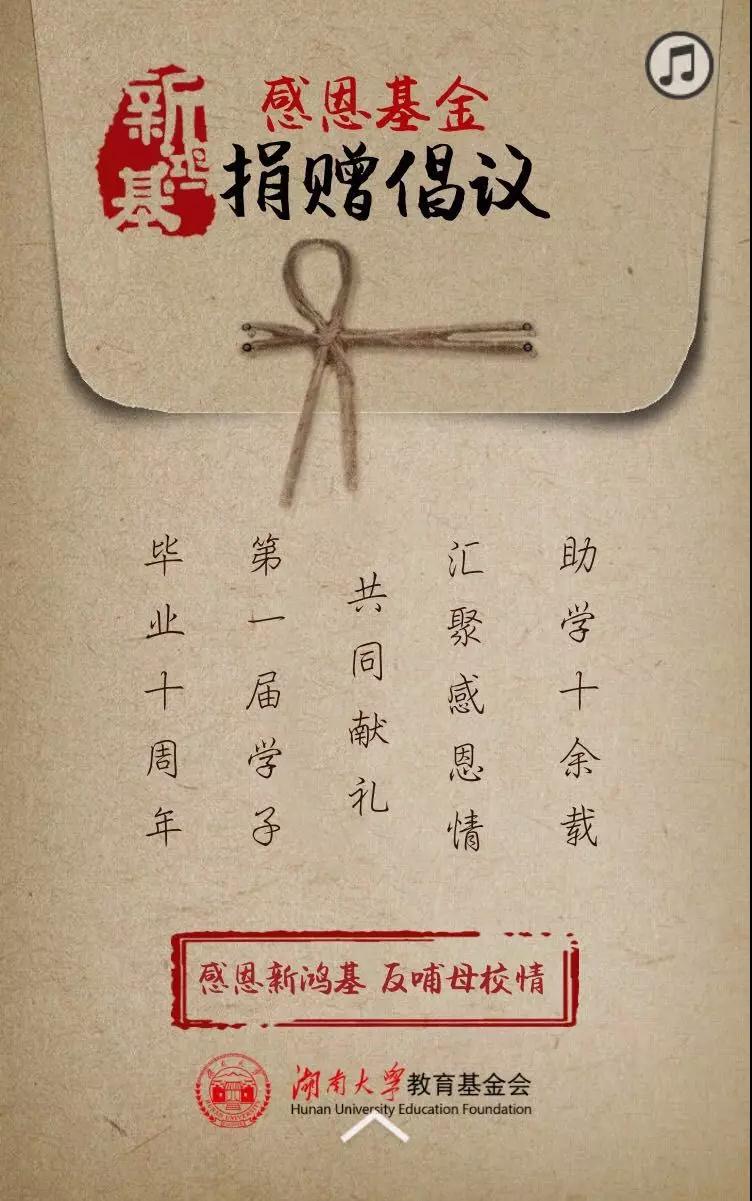 新鸿基
感恩基金
捐赠倡议
助学十余载
汇聚感恩情
共同献礼
第一届学子
毕业十周年
感恩新鸿基 反哺母校情
湖南大学教育基金会
Hunan University Education Foundation